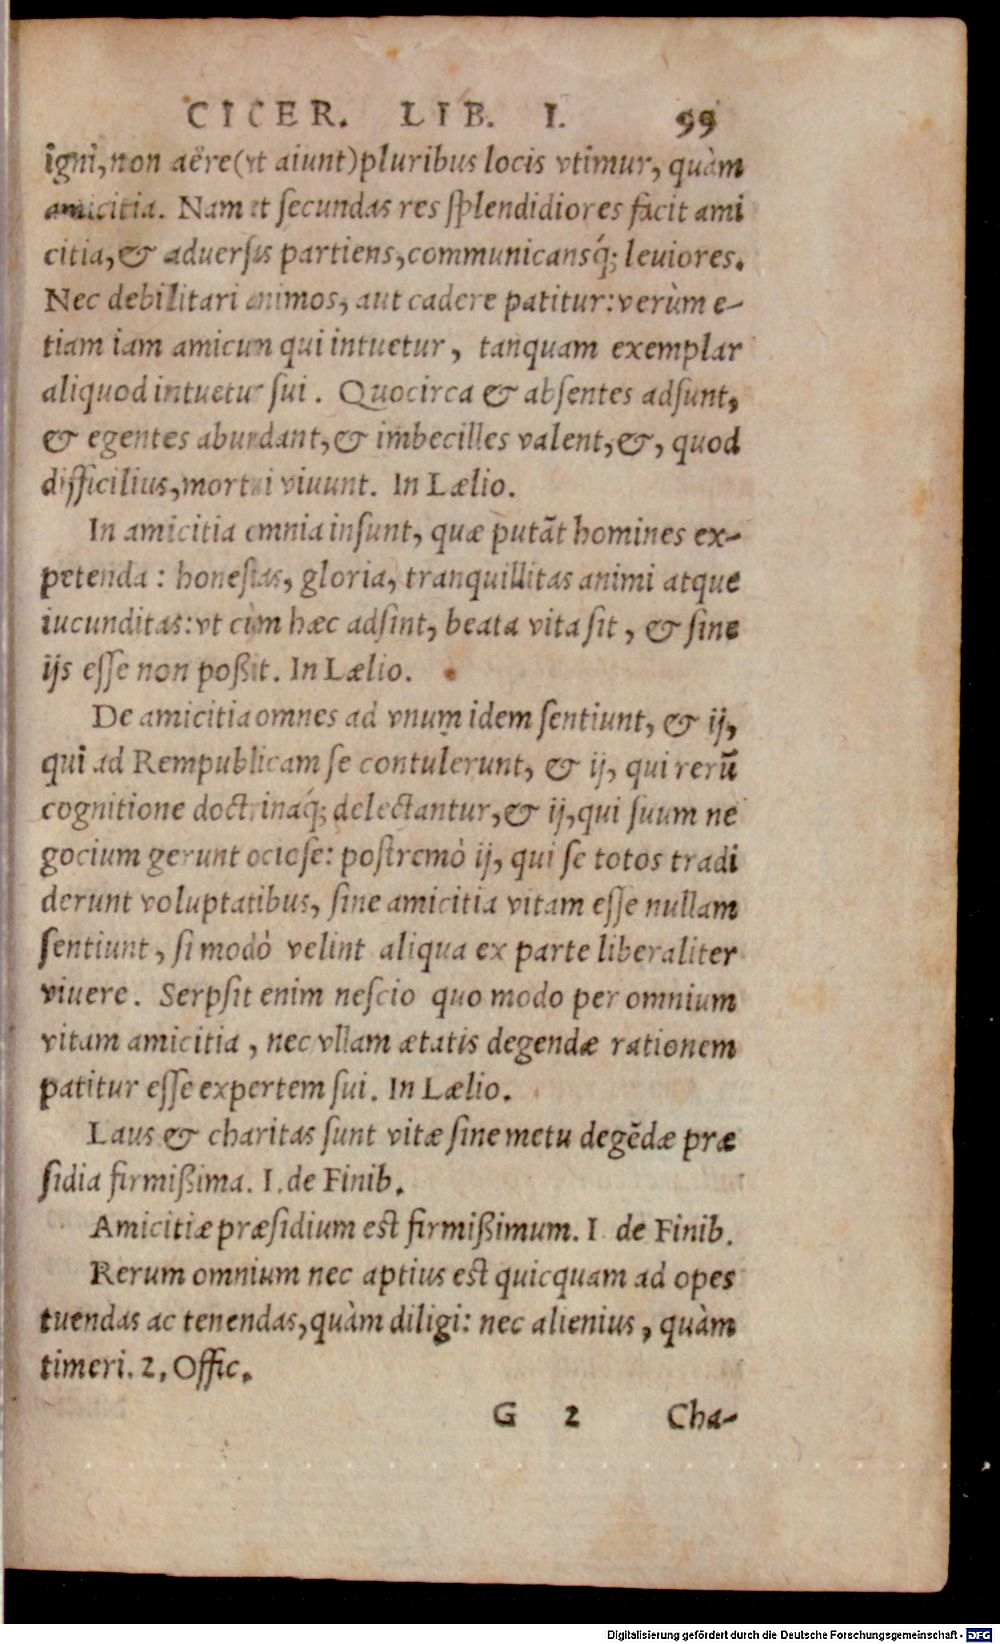 CICER. LIB. I. 99
igni, non aëre (vt aiunt) pluribus locis vtimur, quàm
amicitia. Nam et ſecundas res ſplendidiores facit ami
citia, & aduerſis partiens, communicansq́; leuiores.
Nec debilitari animos, aut cadere patitur: verùm e-
tiam iam amicum qui intuetur, tanquam exemplar
aliquod intuetur ſui. Quocirca & abſentes adſunt,
& egentes abundant, & imbecilles valent, &, quod
difficilius, mortui viuunt. In Lælio.
In amicitia omnia inſunt, quæ putãt homines ex-
petenda: honeſtas, gloria, tranquillitas animi atque
iucunditas: vt cùm hæc adſint, beata vita ſit, & ſine
ijs eſſe non poßit. In Lælio.
De amicitia omnes ad vnum idem ſentiunt, & ij,
qui ad Rempublicam ſe contulerunt, & ij, qui rerũ
cognitione doctrinaq́; delectantur, & ij, qui ſuum ne
gocium gerunt ocioſe: poſtremò ij, qui ſe totos tradi
derunt voluptatibus, ſine amicitia vitam eſſe nullam
ſentiunt, ſi modò velint aliqua ex parte liberaliter
viuere. Serpſit enim neſcio quo modo per omnium
vitam amicitia, nec vllam ætatis degendæ rationem
patitur eſſe expertem ſui. In Lælio.
Laus & charitas ſunt vitæ ſine metu degẽdæ præ
ſidia firmißima. I. de Finib.
Amicitiæ præſidium eſt firmißimum. I de Finib.
Rerum omnium nec aptius eſt quicquam ad opes
tuendas ac tenendas, quàm diligi: nec alienius, quàm
timeri. 2. Offic.
G 2 Cha-
Digitalisierung gefördert durch die Deutsche Forschungsgemeinschaft - DFG